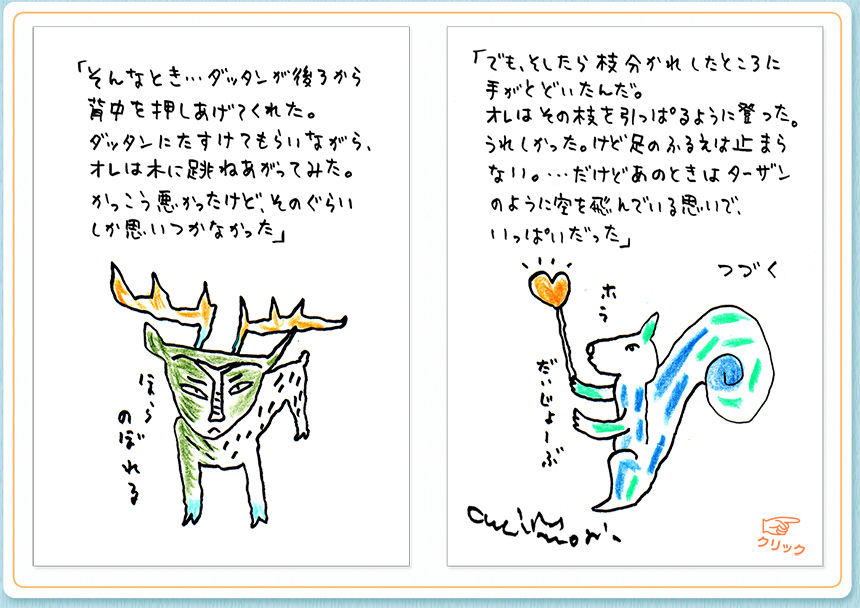 「そんなとき…ダッタンが後ろから
背中を押しあげてくれた。
ダッタンにたすけてもらいながら、
オレは木に跳ねあがってみた。
かっこう悪かったけど、そのぐらい
しか思いつかなかった」
ほら
のぼれる
「でも、そしたら枝分かれしたところに
手がとどいたんだ。
オレはその枝を引っぱるように登った。
うれしかった。けど足のふるえは止まら
ない。…だけどあのときはターザン
のように空を飛んでいる思いで、
いっぱいだった」
つづく
ホラ
だいじょーぶ
クリック